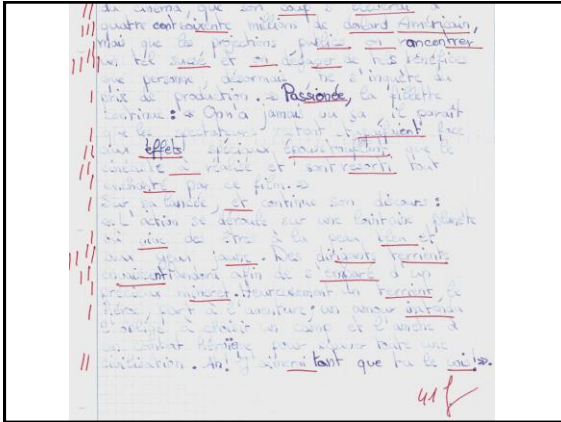 du cinéma, que son coup s'
quatre cent soixente millions de donard Américain,
mais que les projections publié on rancontrer
un tré sucsé et on dégager de trés bénéfices
que personne, désormais, ne s'inquête du
prix de production. » Passionée, la fillette
continue : « On n'a jamais vu sa ! Il parait
que les spectateurs
aux èffets spéciaux que le
cinéaste à réalisé et sont resorti tout
par ce film. »
Sur sa lancée, et continue son discours :
« L'action se déroule sur une lointaine planète
où vive des êtres à la peau bleu et
aux yeux jaune. Des dirijants terrients
Pandora afin de s'emparé d'un
précieux mineret. Heureusement un terrient, le
héros, part à l'aventure ; un amour
l'oblige à choisir un camp et l'amène à
un combat héroïque pour sauver toute une
civilisation. Ah ! J' tant que tu le voi ! ».
41 f